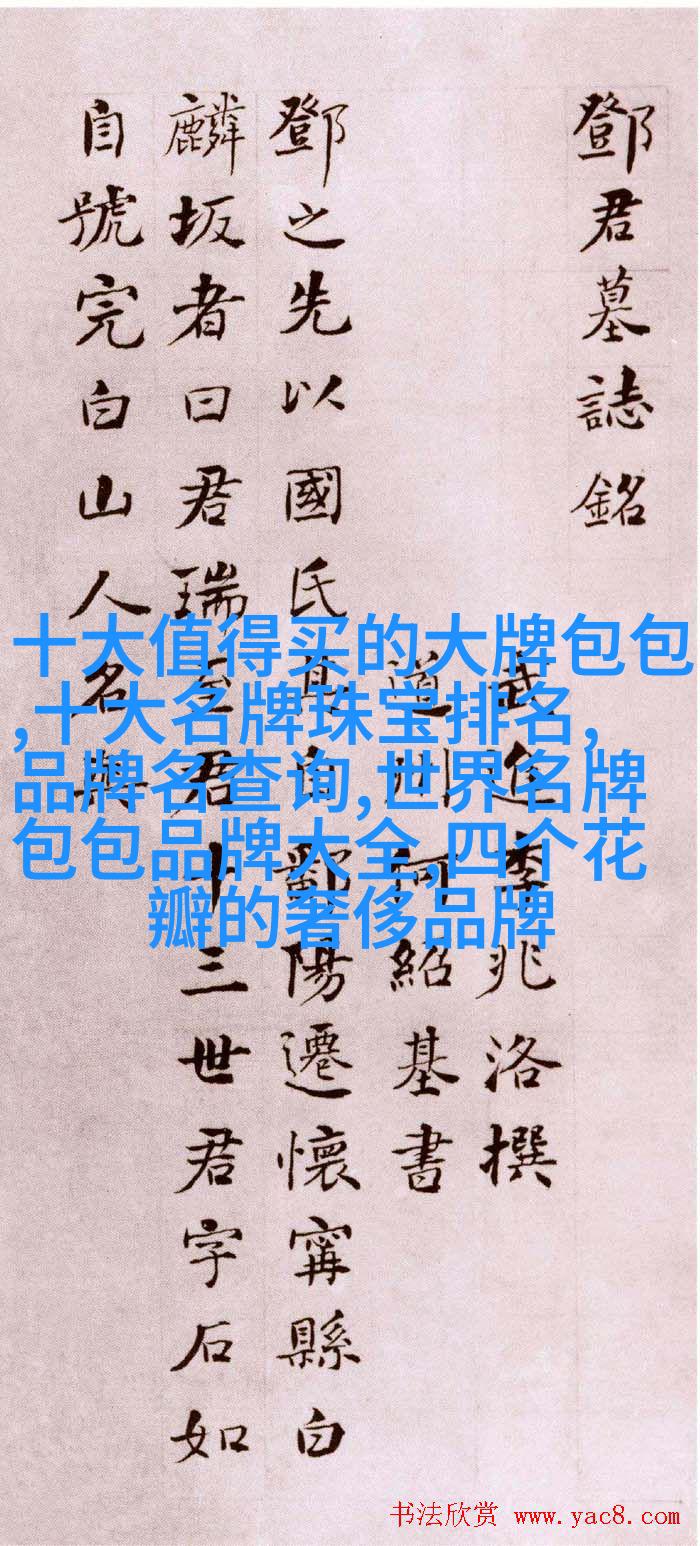 鄧君墓誌銘
武進李兆洛撰
道州何紹基書
鄧之先以國氏其自鄱陽遷懷寗縣白
麟坂者曰君瑞至君十三世君字石如
自號完白山人名與
十大值得买的大牌包包
,十大名牌珠宝排名,
品牌名查询,世界名牌
包包品牌大全,四个花
瓣的奢侈品牌
书法欣赏 www.yac8.com